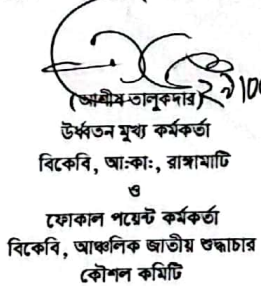 (আশীষ তালুকদার)
উর্ধ্বতন মূখ্য কর্মকর্তা
বিকেবি, আ:কা:, রাঙ্গামাটি
ও
ফোকাল পয়েন্ট কর্মকর্তা
বিকেবি, আঞ্চলিক জাতীয় শুদ্ধাচার
কৌশল কমিটি